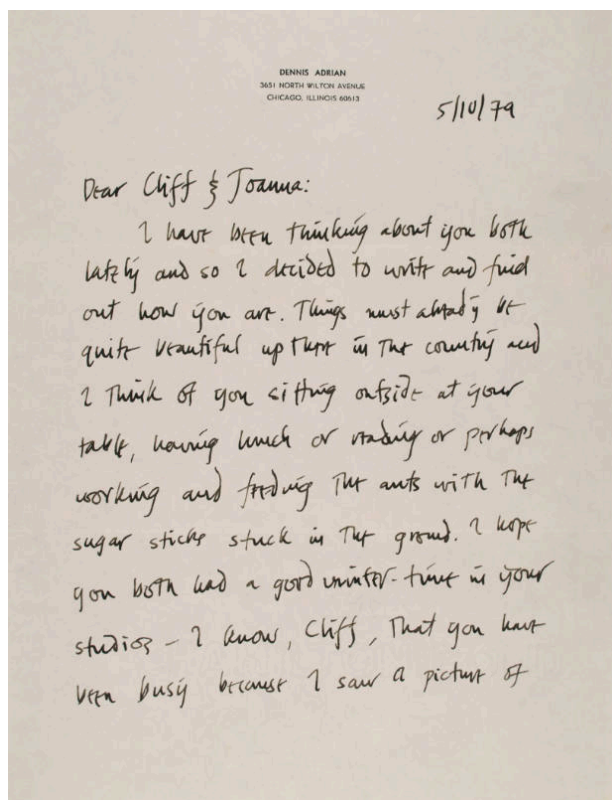 DENNIS ADRIAN
3651 NORTH WILTON AVENUE
CHICAGO, ILLINOIS 60613
5/10/79
Dear Cliff & Joanna:
I have been thinking about you both
lately and so I decided to write and find
out how you are. Things must already be
quite beautiful up there in the country and
I think of you sitting outside at your
table, having lunch or reading or perhaps
working and feeding the ants with the
sugar sticks stuck in the ground. I hope
you both had a good winter-time in your
studios – I know, Cliff, that you have
been busy because I saw a picture of